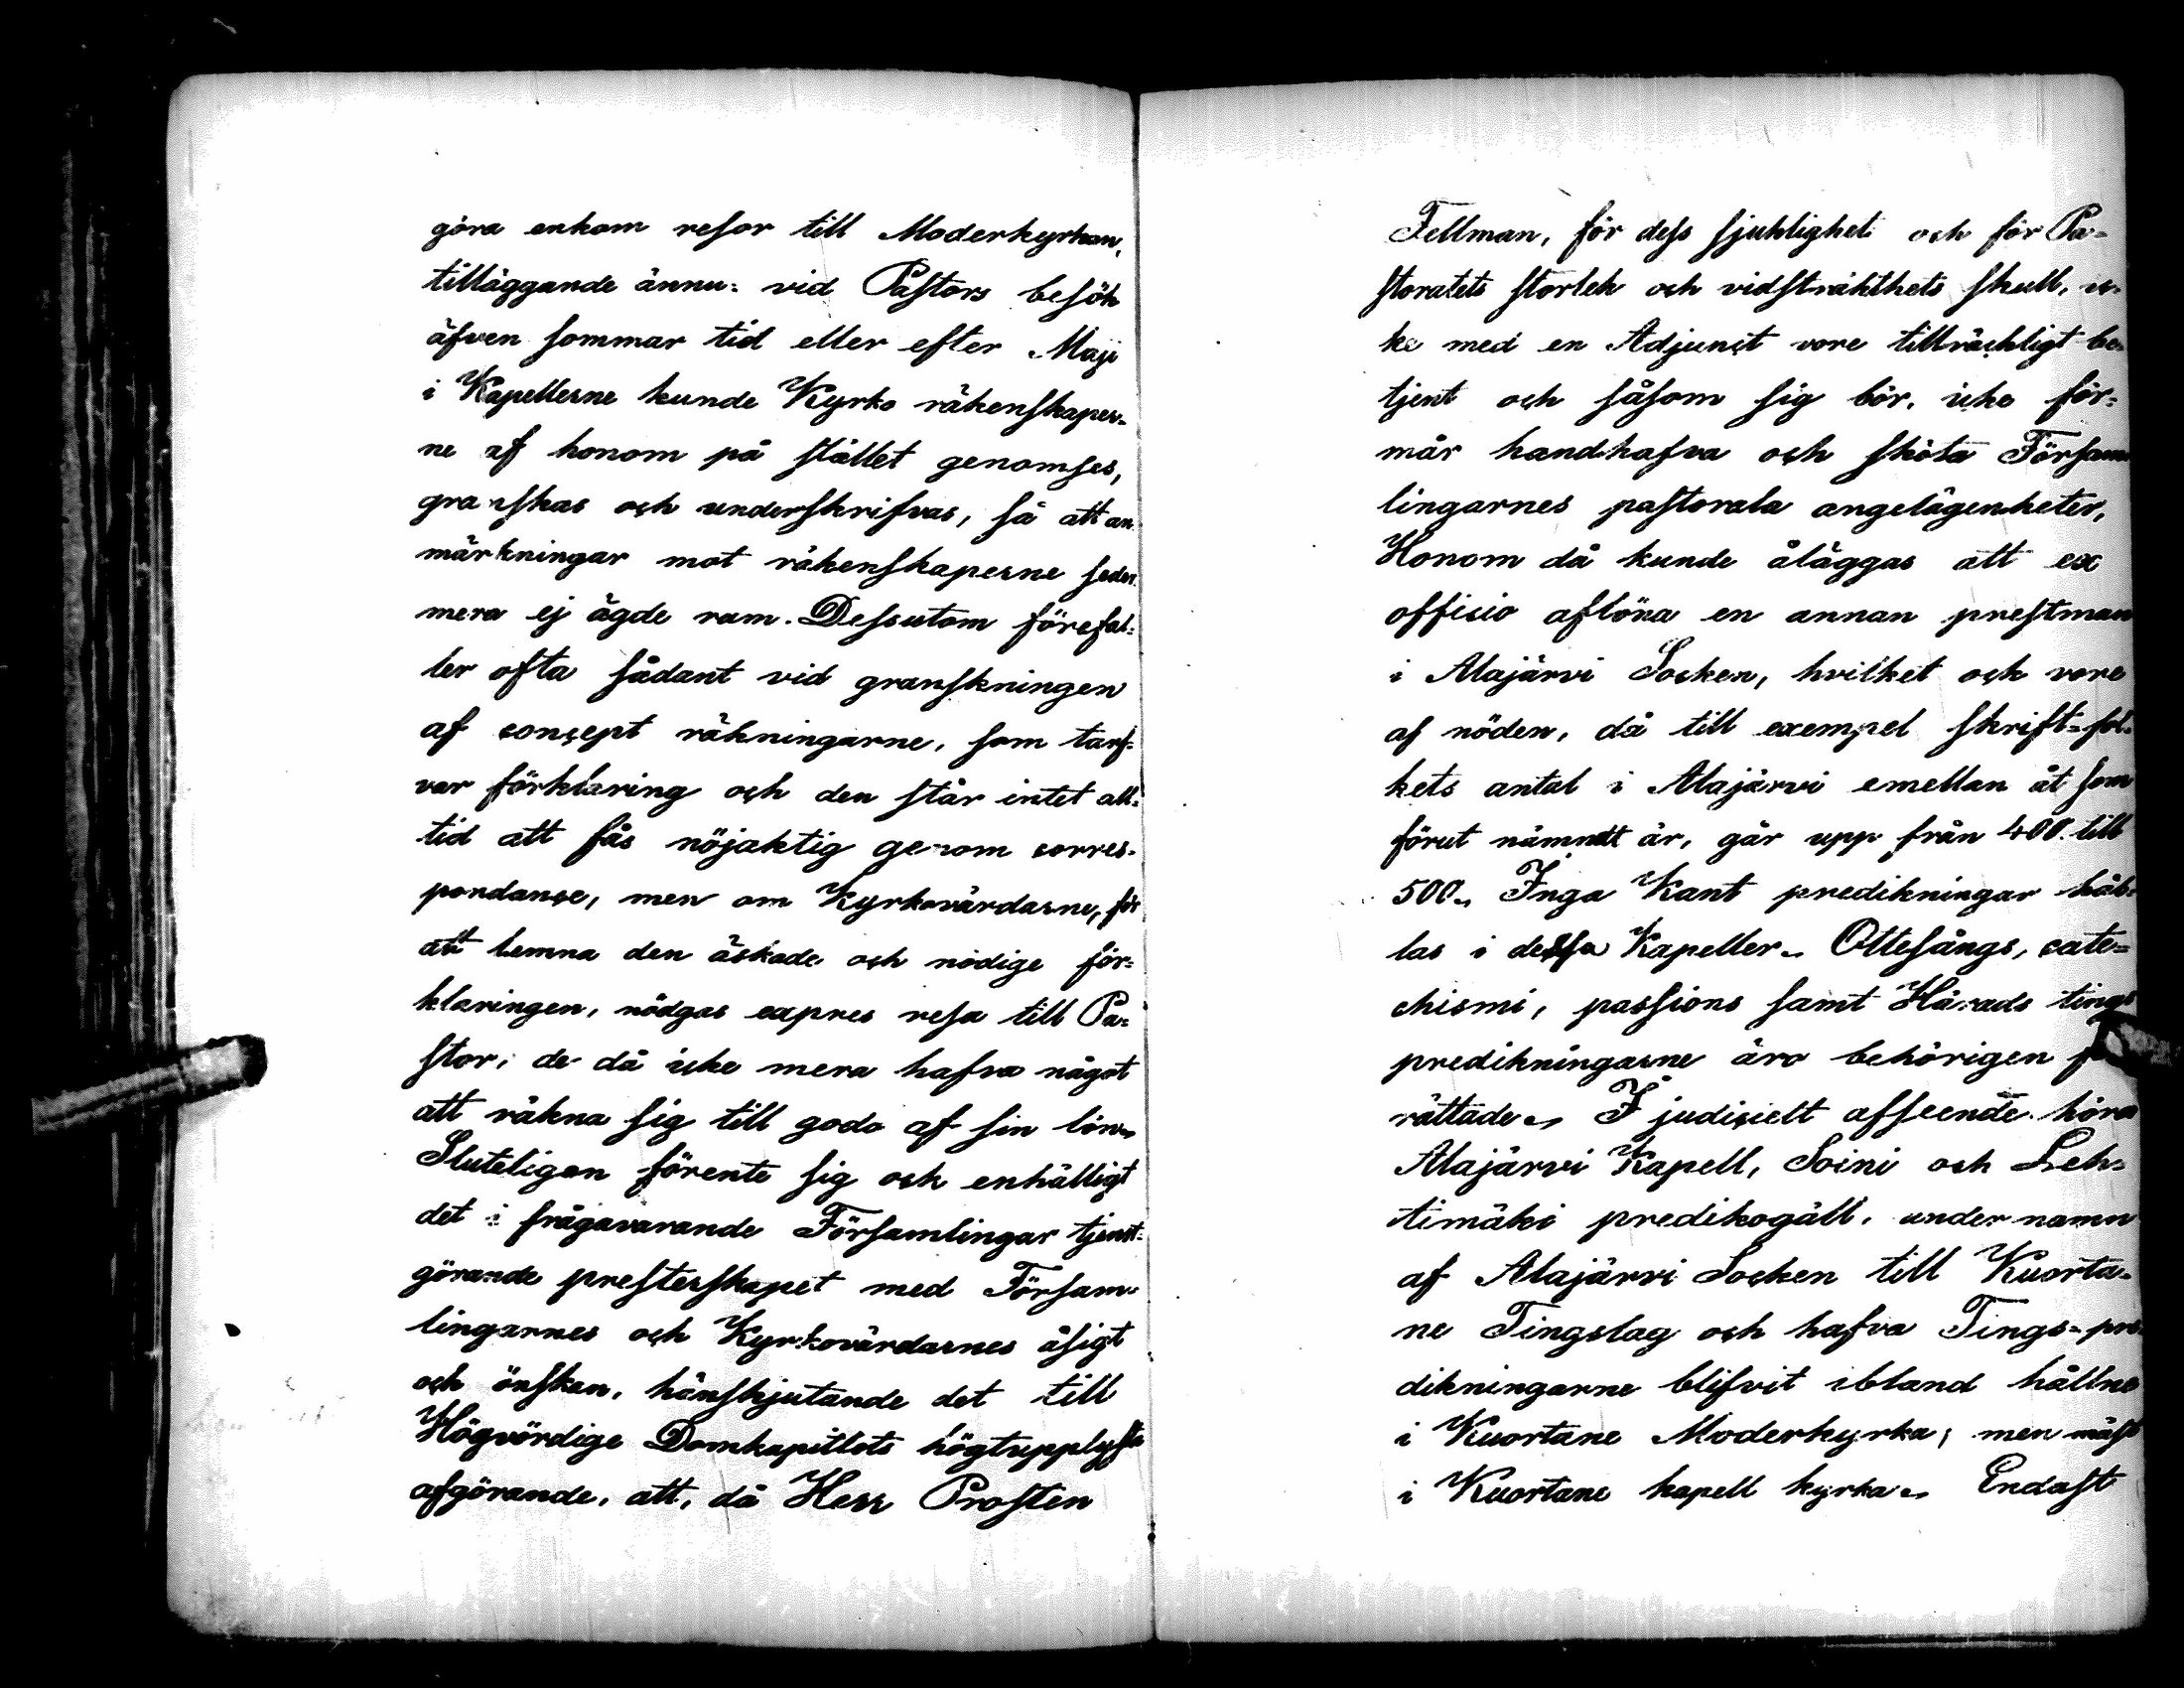 göra enkom resor till Moderkyrkan,
tilläggande ännu: vid Pastors besök
äfven sommar tid eller efter Maji
i Kapellerne kunde Kyrko räkenskaper-
ne af honom på stället genomses,
granskas och underskrifvas, så att an-
märkningar mot räkenskaperne seder-
mera ej ägde rum. Dessutom förefal-
ler ofta sådant vid granskningen
af concept räkningarne, som tarf-
var förklaring och den står intet all-
tid att fås nöjaktig genom corres-
pondance, men om Kyrkovärdarne, för
att lemna den äskade och nödige för-
klaringen, nödgas expres resa till Pa-
stor, de då icke mera hafva något
att räkna sig till godo af sin lön.
Sluteligen förente sig och enhälligt
det i frågavarande Församlingar tjenst-
görande presterskapet med Försam-
lingarnes och Kyrkovärdarnes åsigt
och önskan, hänskjutande det till
Högvördige Domkapitlets högtupplysta
afgörande, att, då Herr Prosten
Fellman, för dess sjuklighet och för Pa-
storatets storlek och vidsträkthets skull, ic-
ke med en Adjunct vore tillräckligt be-
tjent och såsom sig bör, icke för-
mår handhafva och sköta Försam-
lingarnes pastorala angelägenheter,
Honom då kunde åläggas att ex
officio aflöna en annan prestman
i Alajärvi Socken, hvilket och vore
af nöden, då till exempel skrift-fol-
kets antal i Alajärvi emellan åt som
förut nämndt är, går upp från 400 till
500. Inga Kant predikningar hål-
las i dessa Kapeller. Ottesångs, cate-
chismi, passions samt Härads tings
predikningarne äro behörigen
rättade. I judicielt afseende höra
Alajärvi Kapell, Soini och Leh-
timäki predikogäll, under namn
af Alajärvi Socken till Kuorta-
ne Tingslag och hafva Tings-pre-
dikningarne blifvit ibland hållne
i Kuortane Moderkyrka; men mäst
i Kuortane kapell kyrka. Endast